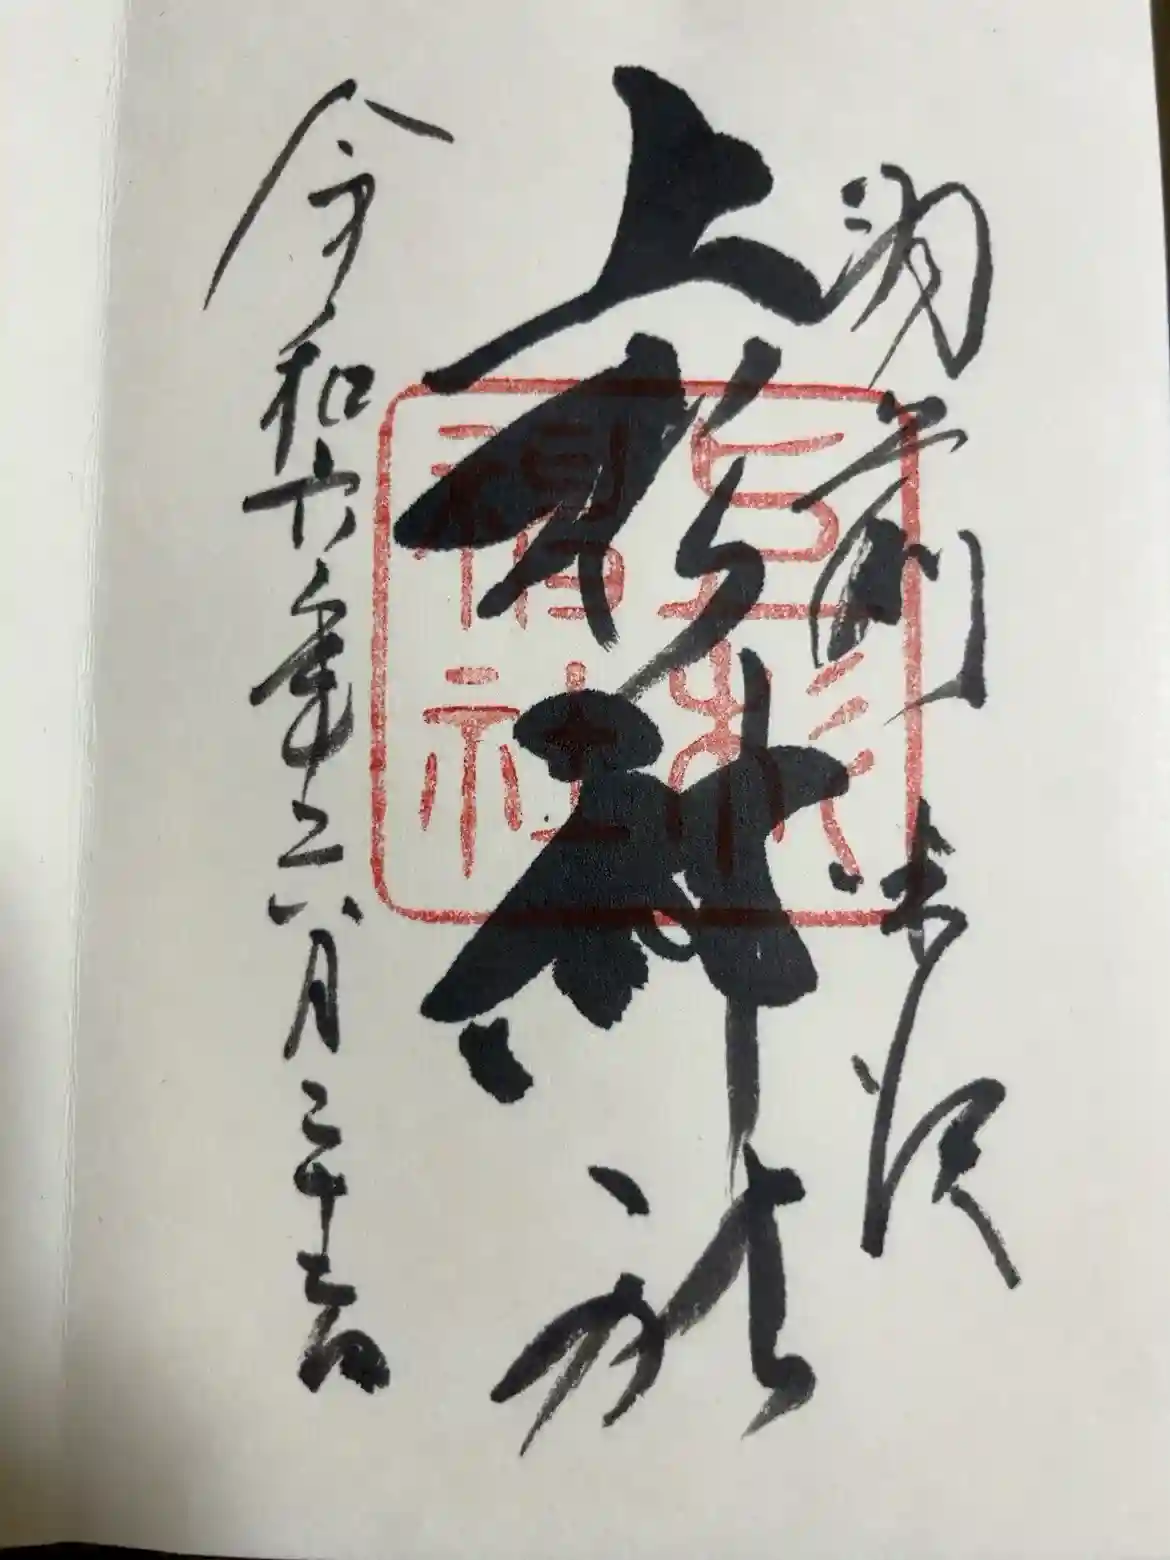 羽前米沢
上杉神社
令和六年六月二十六日
上杉神社